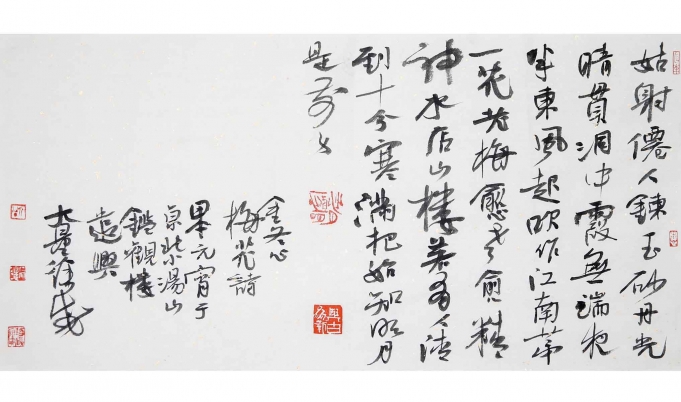 姑射僊人鍊玉砂丹光
晴貫洞中霞無端夜
半東風起吹作江南第
一花老梅愈老愈精
神水店山樓若有人清
到十分寒滿把始知明月
是前身
金冬心
梅花詩
甲元宵于
京北小湯山
鑑觀樓
遣興